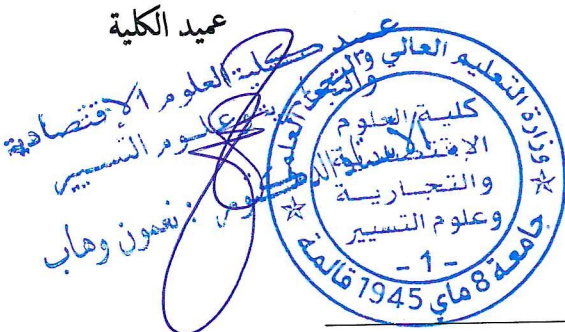 عميد الكلية
عميد كلية العلوم الإقتصادية
والتجارية وعلوم التسيير
الأستاذ الدكتور : نعمون وهاب
وزارة التعليم العالي والبحث العلمي
كلية العلوم
الإقتصادية
والتجارية
وعلوم التسيير
- 1 -
جامعة 8 ماي 1945 قالمة